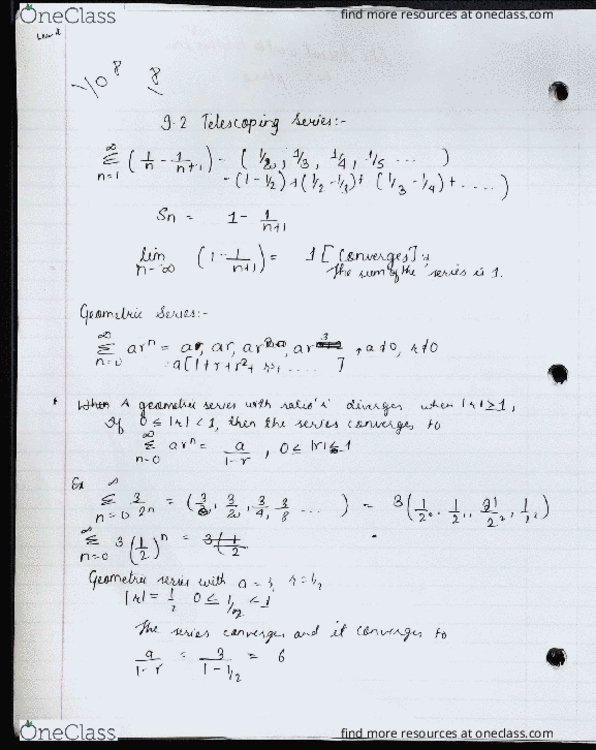 OneClass
find more resources at oneclass.com
10^8 8
9.2 Telescoping Series:-
∞ Σ n=1 (1/n - 1/n+1) - ( 1/2, 1/3, 1/4, 1/5 ... )
- (1 - 1/2) + (1/2 - 1/3) + (1/3 - 1/4) + .... )
Sn = 1 - 1/n+1
lim n→∞ (1 - 1/n+1) = 1 [Converges];
The sum of the series is 1.
Geometric Series:-
∞ Σ n=0 ar^n = a, ar, ar^2, ar^3, a≠0, r≠0
a[1+r+r^2+ r^3, .... ]
* A geometric series with ratio 'r' diverges when |r| ≥ 1,
If 0 ≤ |r| < 1, then the series converges to
∞ Σ n=0 ar^n = a/1-r , 0 ≤ |r| ≤ 1
Ex
∞ Σ n=0 3/2^n = (3, 3/2, 3/4, 3/8 ... ) = 3(1/2^0, 1/2^1, 1/2^2, 1/2)
∞ Σ n=0 3(1/2)^n = 3(1/2
Geometric series with a = 3, r = 1/2
|r| = 1/2 0 ≤ 1/2 < 1
The series converges and it converges to
a/1-r = 3/1-1/2 = 6
OneClass
find more resources at oneclass.com